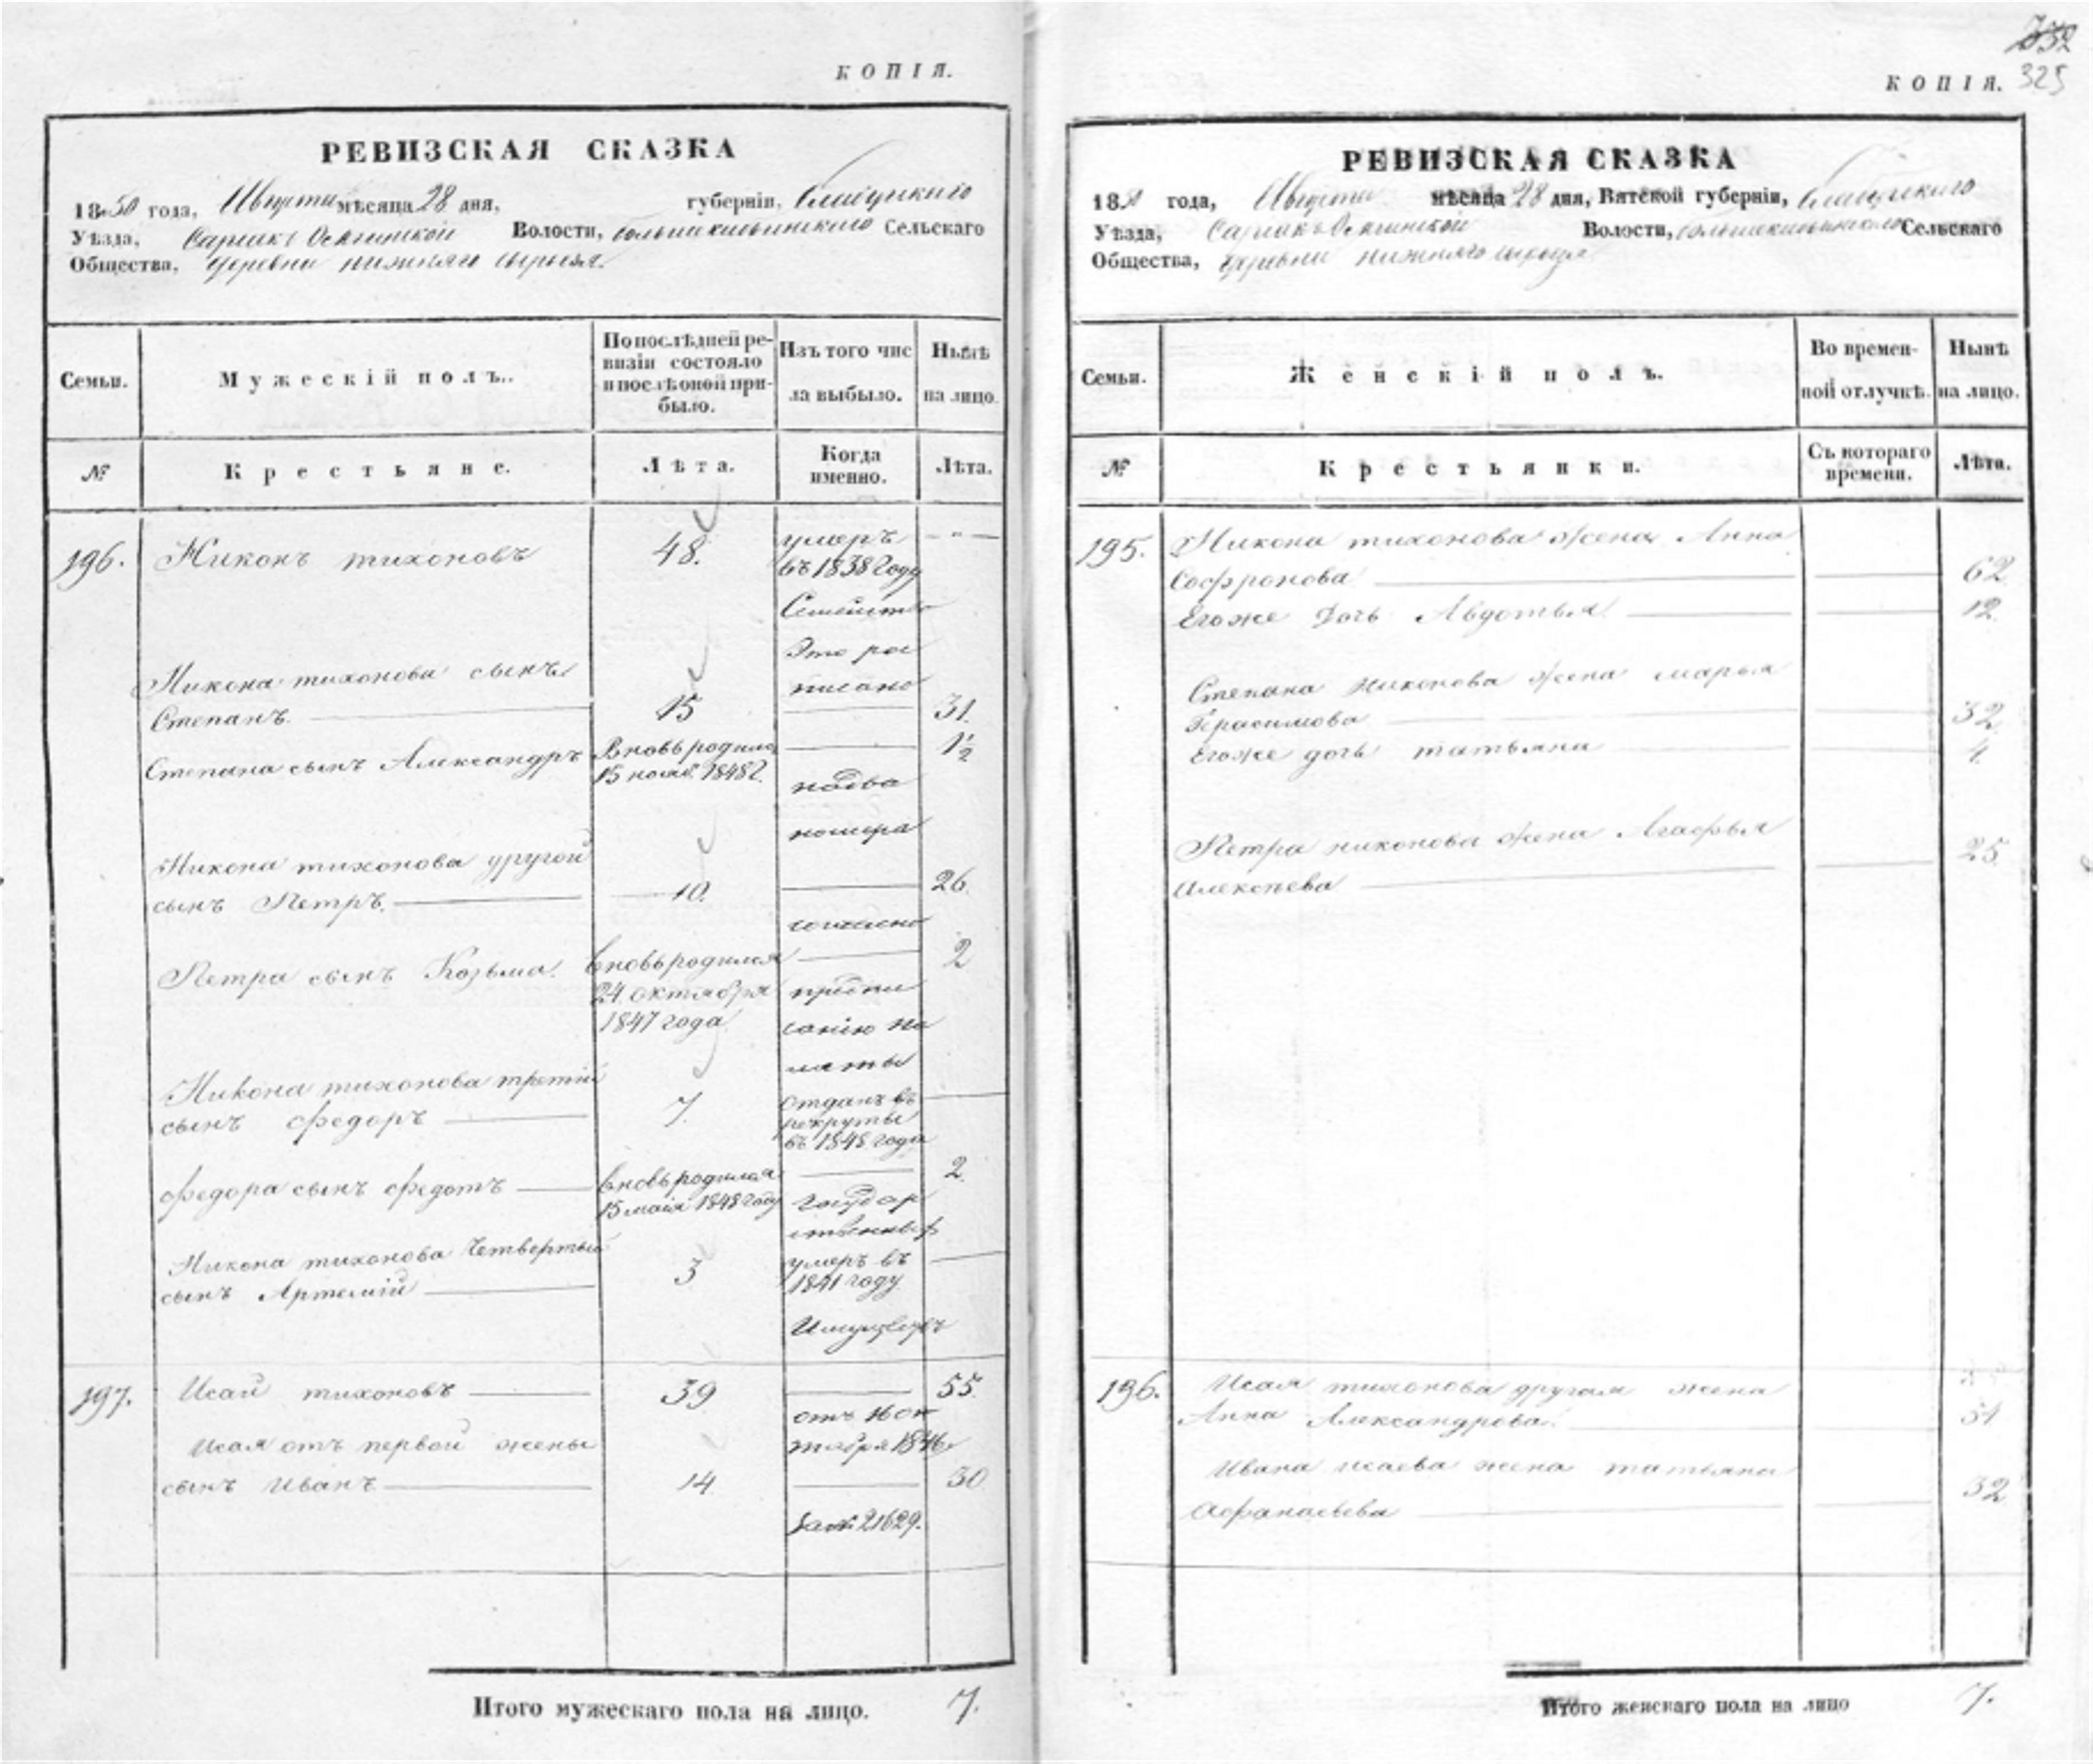 КОПІЯ.
РЕВИЗСКАЯ СКАЗКА
1850 года, Августа мѣсяца 28 дня, губерніи, Елабужскаго
Уѣзда, Волости, Сельскаго
Общества, деревни нижняго
Семьи.
Мужескій полъ.
По послѣдней ре-
визіи состояло
и послѣ оной при-
было.
Изъ того чис
ла выбыло.
Нынѣ
на лицо.
№
Крестьяне.
Лѣта.
Когда
именно.
Лѣта.
196. Никонъ тихоновъ 48. умеръ - " -
въ 1838 году
Семейство
Это рас
Никона тихонова сынъ писано
Степанъ. 15 31.
Степана сынъ Александръ Вновь родился 1 1/2
15 нояб. 1848 г.
на два
номера
Никона тихонова другой
сынъ Петръ. 10. 26.
согласно
Петра сынъ Козьма. вновь родился 2
24 октября предпи
1847 года санію па
латы
Никона тихонова третій
сынъ Федоръ 7. отданъ въ
рекруты
въ 1848 года
Федора сынъ Федотъ вновь родился 2
15 маія 1848 году государ
ственныхъ
Никона тихонова Четвертый
сынъ Артемій 3 умеръ въ
1841 году
Имуществъ
197. Исай тихоновъ 39 55.
отъ 16 ок
Исая отъ первой жены тября 1846
сынъ Иванъ 14 30
за № 21629.
Итого мужескаго пола на лицо. 7.
325
КОПІЯ.
РЕВИЗСКАЯ СКАЗКА
18 года, Августа мѣсяца 28 дня, Вятской губерніи, Елабужскаго
Уѣзда, Волости, Сельскаго
Общества, деревни нижняго
Семьи.
Женскій полъ.
Во времен-
ной отлучкѣ.
Нынѣ
на лицо.
№
Крестьянки.
Съ котораго
времени.
Лѣта.
195. Никона тихонова жена Анна
Софронова 62
Егоже Дочь Авдотья 12
Степана никонова жена марья
Герасимова 32
Егоже дочь татьяна 4
Петра никонова жена Агафья
Алексѣева 25
196. Исая тихонова другая жена
Анна Александрова. 51
Ивана исаева жена татьяна
Афанасьева 32
Итого женскаго пола на лицо 7.